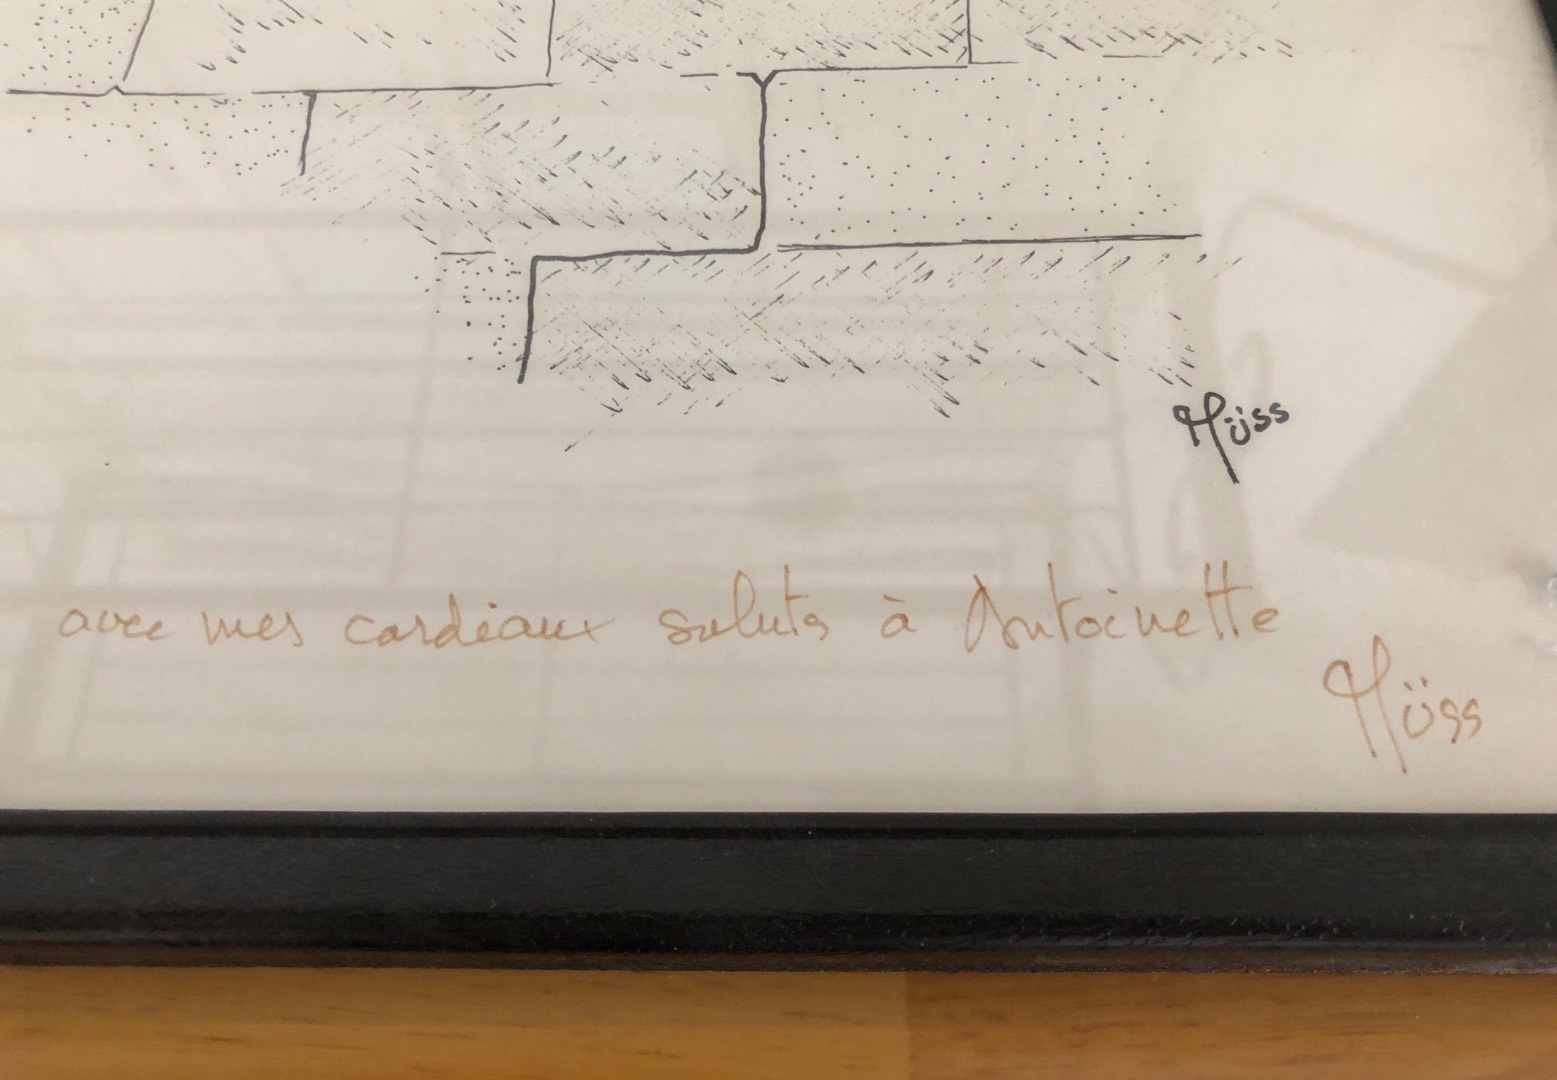 Müss
avec mes cordiaux saluts à Antoinette
Müss